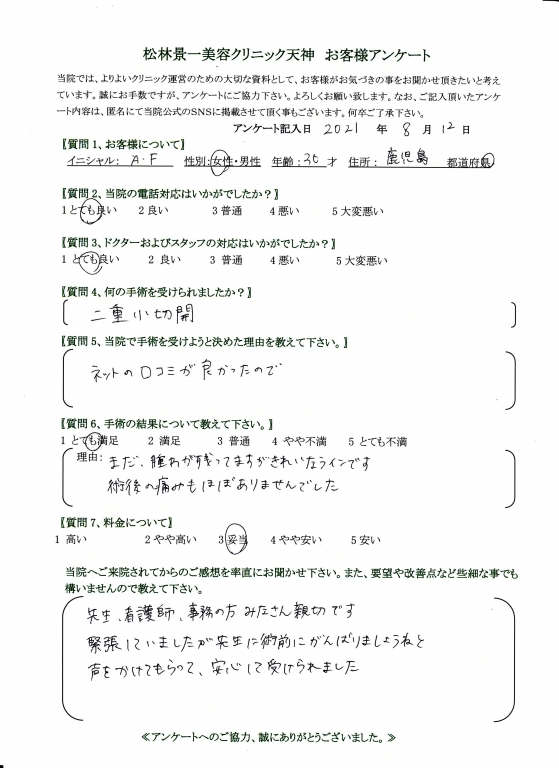 松林景一美容クリニック天神　お客様アンケート
当院では、よりよいクリニック運営のための大切な資料として、お客様がお気づきの事をお聞かせ頂きたいと考え
ています。誠にお手数ですが、アンケートにご協力下さい。よろしくお願い致します。なお、ご記入頂いたアンケ
ート内容は、匿名にて当院公式のSNSに掲載させて頂く事もございます。何卒ご了承下さい。
アンケート記入日　2021　年　8　月　12　日
【質問1、お客様について】
イニシャル：　A・F　性別：女性・男性　年齢：36　才　住所：　鹿児島　都道府県
【質問2、当院の電話対応はいかがでしたか？】
1 とても良い　2 良い　3 普通　4 悪い　5 大変悪い
【質問3、ドクターおよびスタッフの対応はいかがでしたか？】
1 とても良い　2 良い　3 普通　4 悪い　5 大変悪い
【質問4、何の手術を受けられましたか？】
二重小切開
【質問5、当院で手術を受けようと決めた理由を教えて下さい。】
ネットの口コミが良かったので
【質問6、手術の結果について教えて下さい。】
1 とても満足　2 満足　3 普通　4 やや不満　5 とても不満
理由：まだ、腫れが残ってますがきれいなラインです
術後の痛みもほぼありませんでした
【質問7、料金について】
1 高い　2 やや高い　3 妥当　4 やや安い　5 安い
当院へご来院されてからのご感想を率直にお聞かせ下さい。また、要望や改善点など些細な事でも
構いませんので教えて下さい。
先生、看護師、事務の方 みなさん親切です
緊張していましたが先生に術前にがんばりましょうねと
声をかけてもらって、安心して受けられました
≪アンケートへのご協力、誠にありがとうございました。≫